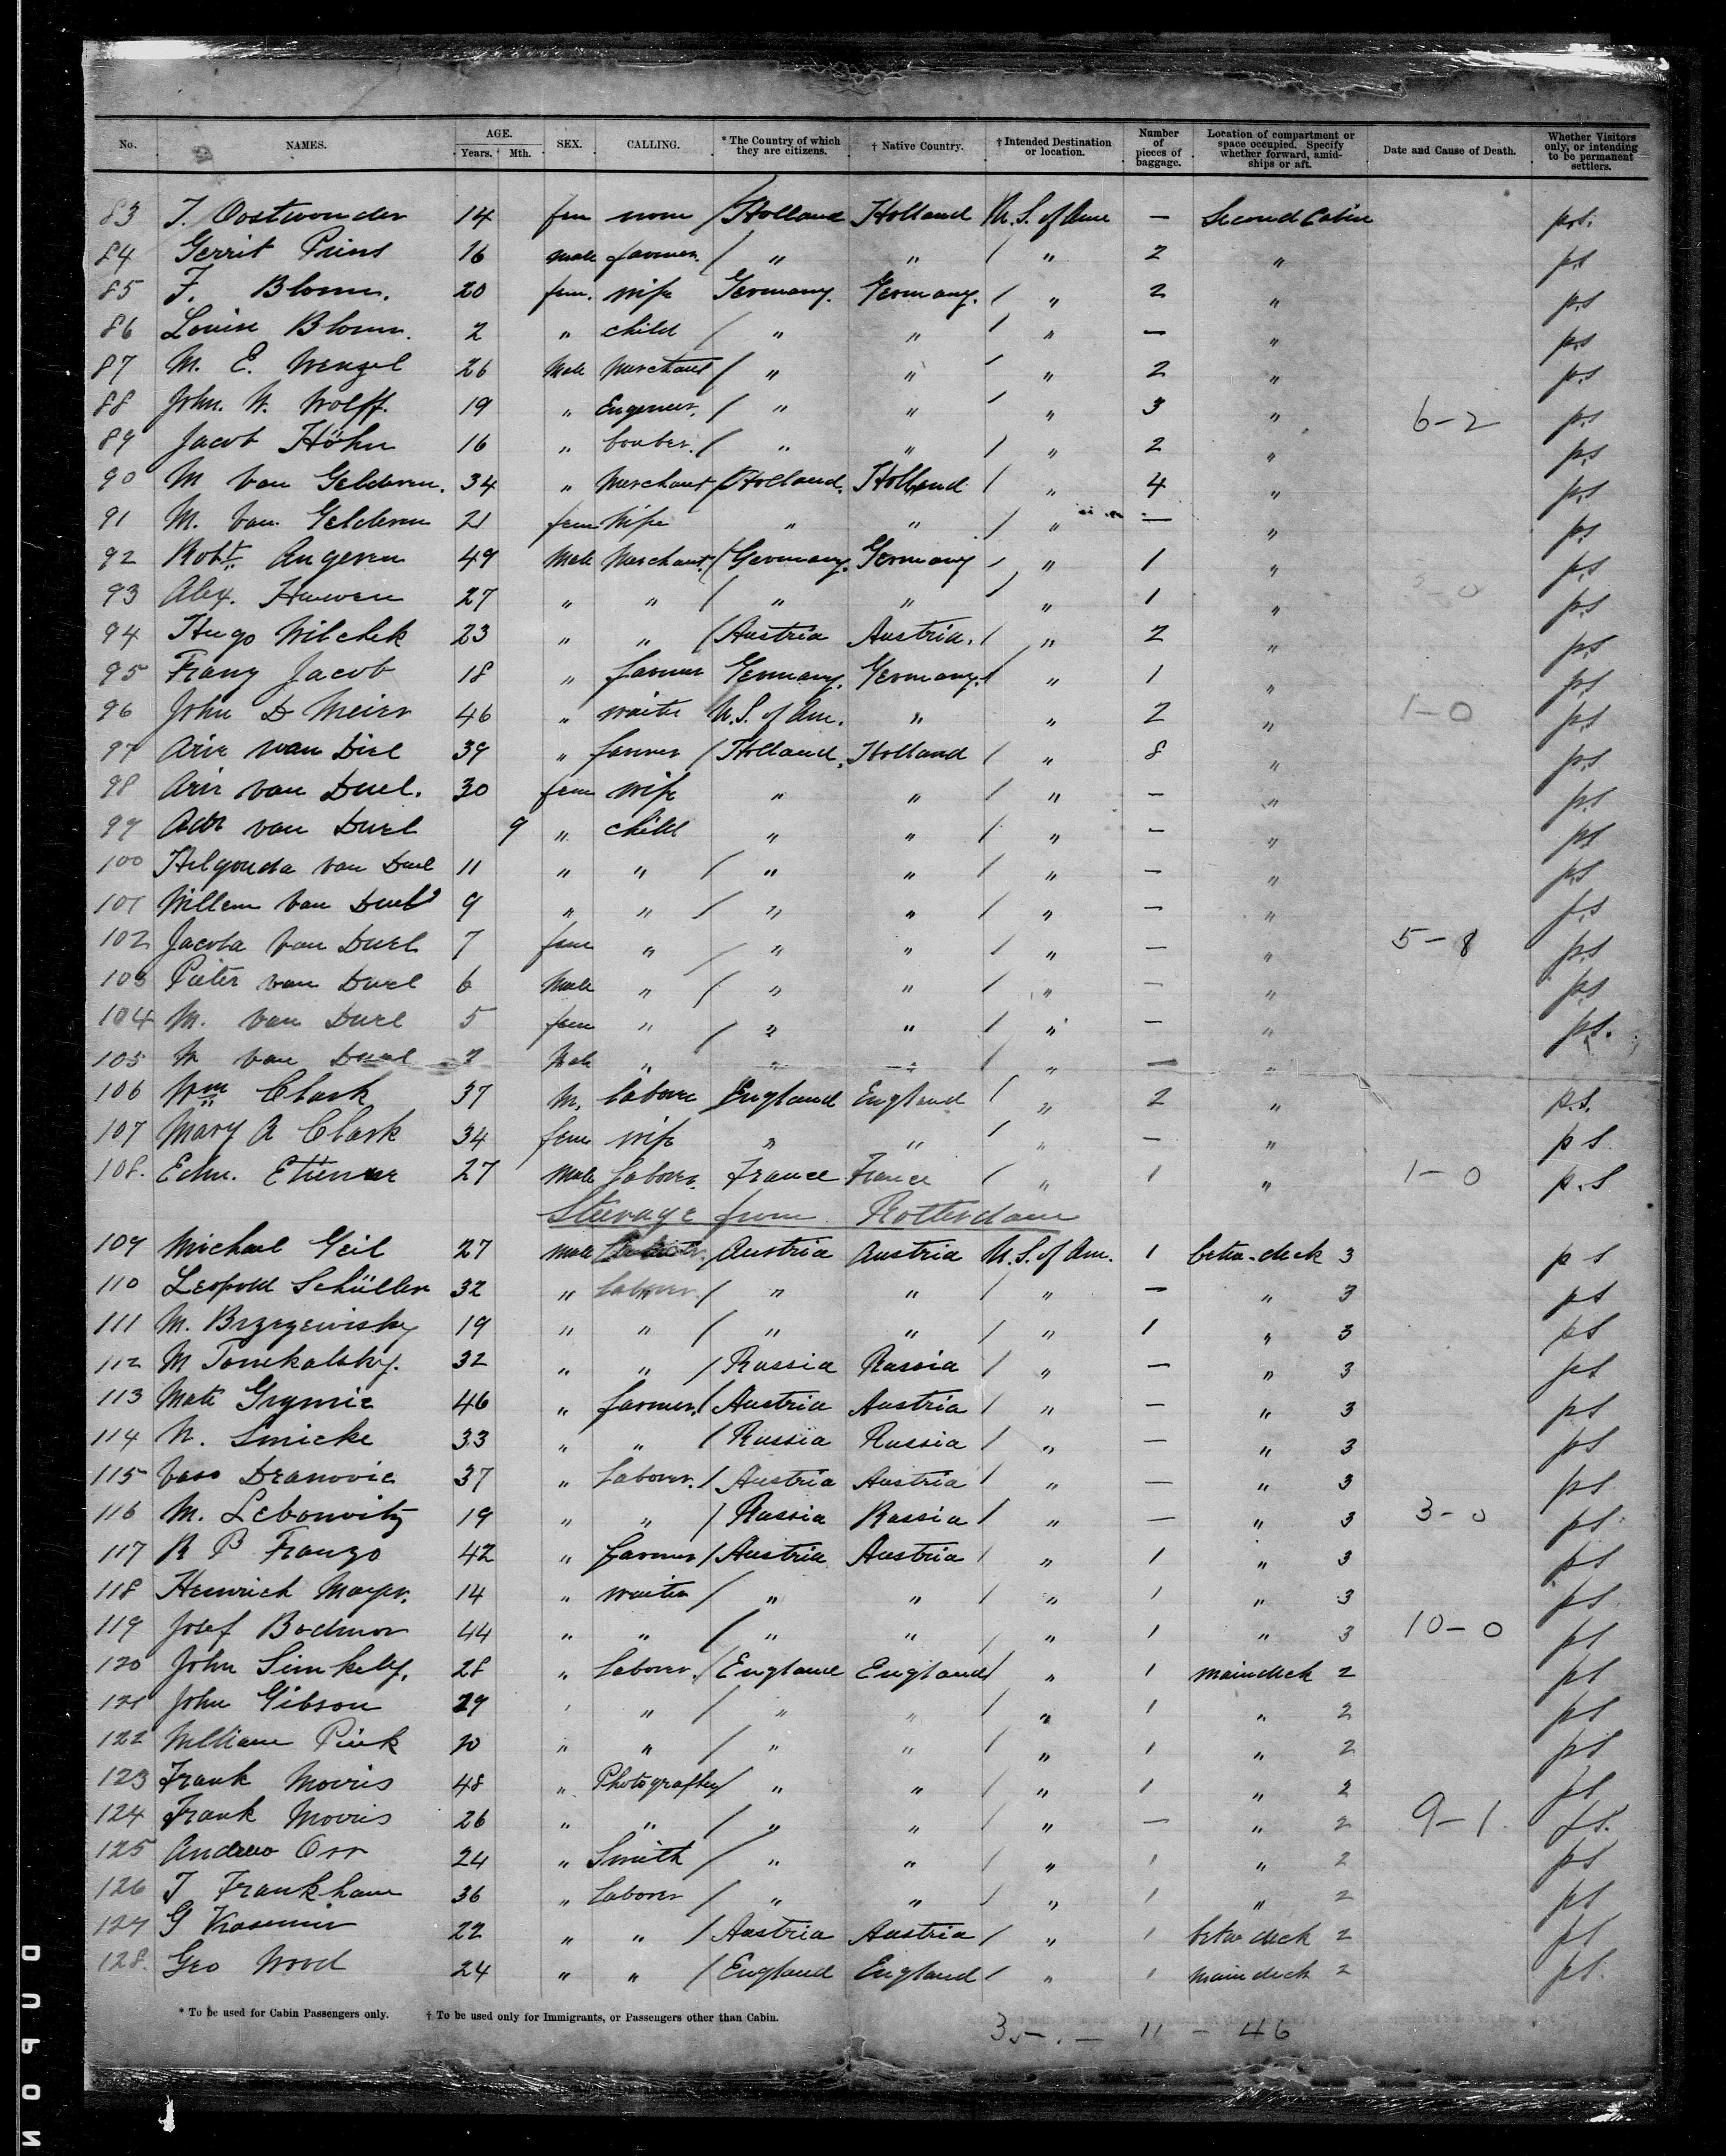 No. NAMES. AGE. Years. Mth. SEX. CALLING. * The Country of which they are citizens. † Native Country. † Intended Destination or location. Number of pieces of baggage. Location of compartment or space occupied. Specify whether forward, amidships or aft. Date and Cause of Death. Whether Visitors only, or intending to be permanent settlers.
83 T. Oostwonder 14 fem none / Holland Holland U.S. of Ame — Second Cabin p.s.
84 Gerrit Prins 16 male farmer. / " " / " 2 " p.s
85 F. Blomm. 20 fem. wife Germany. Germany. / " 2 " p.s
86 Louise Blomm. 2 " child / " " / " — " p.s
87 M. E. Wenzel 26 Male Merchant / " " / " 2 " p.s
88 John. W. Wolff. 19 " Engeneer. / " " / " 3 " 6-2 p.s
89 Jacob Höhn 16 " / " " / " 2 " p.s
90 M van Gelderen. 34 " Merchant / Holland. Holland / " 4 " p.s
91 M. van Gelderen 21 fem Wife " " / " — " p.s
92 Robt. Angeren 49 Male Merchant. / Germany. Germany / " 1 " p.s
93 Alex. 27 " " / " " / " 1 " 3-0 p.s
94 Hugo Wilchek 23 " " / Austria Austria. / " 2 " p.s
95 Franz Jacob 18 " farmer Germany. Germany. / " 1 " p.s
96 John D Meier 46 " waiter U.S. of Am. " " 2 " 1-0 p.s
97 Arie van Diel 39 " farmer / Holland. Holland / " 8 " p.s
98 Arie van Duel. 30 fem wife " " / " — " p.s
99 van Duel 9 " child " " / " — " p.s
100 Hilgonda van Duel 11 " " / " " / " — " p.s
101 Willem van Duel 9 " " / " " / " — " p.s
102 Jacoba van Duel 7 fem " / " " / " — " 5-8 p.s
103 Pieter van Duel 6 Male " / " " / " — " p.s
104 M. van Duel 5 fem " / " " / " — " p.s.
105 W van Duel 2 Male " " " / " — "
106 Wm Clark 37 M. laborer England England / " 2 " p.s.
107 Mary A Clark 34 fem wife " " / " — " p s.
108. Edm. Etienne 27 Male laborer. France France / " 1 " 1-0 p.s
Steerage from Rotterdam
109 Michael Geil 27 male Austria Austria U.S. of Am. 1 betw-deck 3 p s
110 Leopold Schüller 32 " laborer / " " / " — " 3 p s
111 M. 19 " " / " " / " 1 " 3 p s
112 M 32 " " / Russia Russia / " — " 3 p s
113 Mate 46 " farmer. / Austria Austria / " — " 3 p s
114 N. Smicke 33 " " / Russia Russia / " — " 3 p s
115 Vaso Dranovic 37 " Laborer. / Austria Austria / " — " 3 p s
116 M. Lebonvitz 19 " " / Russia Russia / " — " 3 3-0 p s
117 R P Franzo 42 " farmer / Austria Austria / " 1 " 3 p s
118 Heinrich Mayer. 14 " waiter / " " / " 1 " 3 p s
119 Josef Bodmor 44 " " / " " / " 1 " 3 10-0 p s
120 John Simkely. 28 " Laborer. / England England / " 1 maindeck 2 p s
121 John Gibson 29 " " / " " / " 1 " 2 p s
122 William Pink 20 " " / " " / " 1 " 2 p s
123 Frank Morris 48 " Photografher / " " / " 1 " 2 p s
124 Frank Morris 26 " " / " " / " — " 2 9-1 p s.
125 Andrew Orr 24 " Smith / " " / " 1 " 2 p s
126 T Frankham 36 " Laborer / " " / " 1 " 2 p s
127 G Krasemir 22 " " / Austria Austria / " 1 betw deck 2 p s
128. Geo Wood 24 " " / England England / " 1 main deck 2 p s.
* To be used for Cabin Passengers only. † To be used only for Immigrants, or Passengers other than Cabin.
35 — 11 - 46
DUPON